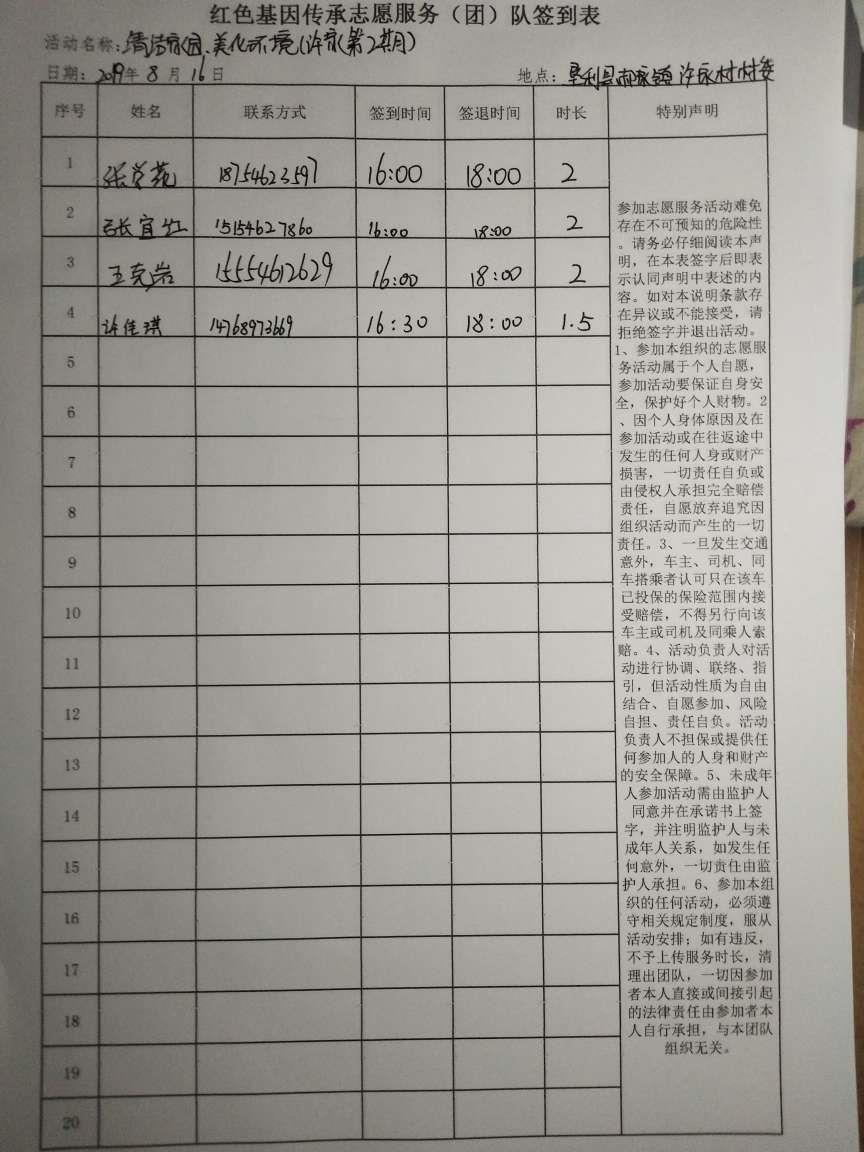 红色基因传承志愿服务（团）队签到表
活动名称：清洁家园、美化环境（许家第2期）
日期：2019年8月16日 地点：垦利县郝家镇许家村村委
序号 姓名 联系方式 签到时间 签退时间 时长 特别声明
1 18754623597 16:00 18:00 2
2 张宜红 15154627860 16:00 18:00 2
3 王克岩 15554612629 16:00 18:00 2
4 许佳琪 14768973669 16:30 18:00 1.5
5
6
7
8
9
10
11
12
13
14
15
16
17
18
19
20
参加志愿服务活动难免
存在不可预知的危险性
。请务必仔细阅读本声
明，在本表签字后即表
示认同声明中表述的内
容。如对本说明条款存
在异议或不能接受，请
拒绝签字并退出活动。
1、参加本组织的志愿服
务活动属于个人自愿，
参加活动要保证自身安
全，保护好个人财物。2
、因个人身体原因及在
参加活动或在往返途中
发生的任何人身或财产
损害，一切责任自负或
由侵权人承担完全赔偿
责任，自愿放弃追究因
组织活动而产生的一切
责任。3、一旦发生交通
意外，车主、司机、同
车搭乘者认可只在该车
已投保的保险范围内接
受赔偿，不得另行向该
车主或司机及同乘人索
赔。4、活动负责人对活
动进行协调、联络、指
引，但活动性质为自由
结合、自愿参加、风险
自担、责任自负。活动
负责人不担保或提供任
何参加人的人身和财产
的安全保障。5、未成年
人参加活动需由监护人
同意并在承诺书上签
字，并注明监护人与未
成年人关系，如发生任
何意外，一切责任由监
护人承担。6、参加本组
织的任何活动，必须遵
守相关规定制度，服从
活动安排；如有违反，
不予上传服务时长，清
理出团队，一切因参加
者本人直接或间接引起
的法律责任由参加者本
人自行承担，与本团队
组织无关。